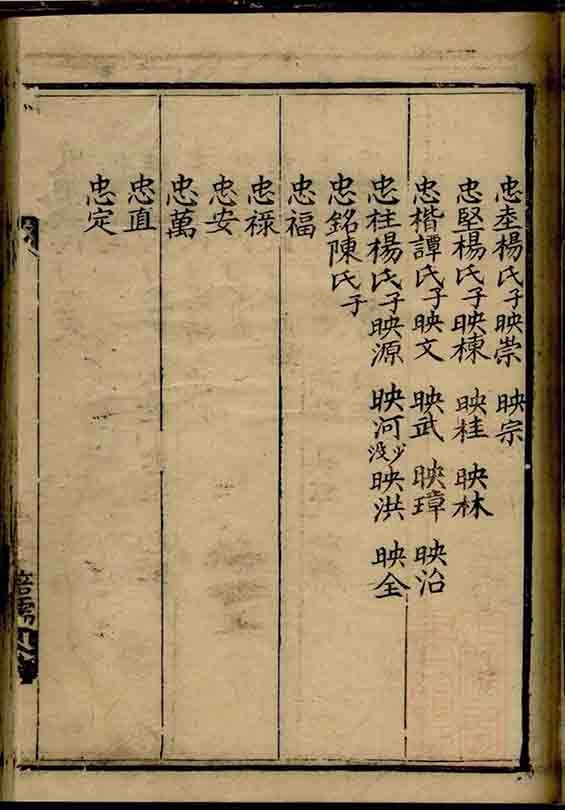 忠坴楊氏子映崇 映宗
忠堅楊氏子映棟 映桂 映林
忠楷譚氏子映文 映武 映璋 映治
忠柱楊氏子映源 映河少没 映洪 映全
忠銘陳氏子
忠福
忠祿
忠安
忠萬
忠直
忠定